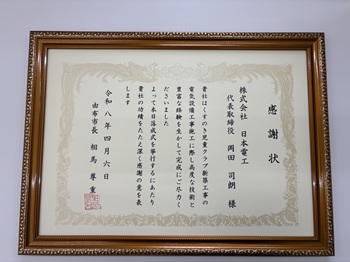 感謝状
株式会社 日本電工
代表取締役 岡田 司朗 様
貴社はくすのき児童クラブ新築工事の
電気設備工事施工に際し高度な技術と
豊富な経験を生かして完成にご尽力く
ださいました
よって本日落成式を挙行するにあたり
貴社の功績をたたえ深く感謝の意を表
します
令和八年四月六日
由布市長 相馬 尊重